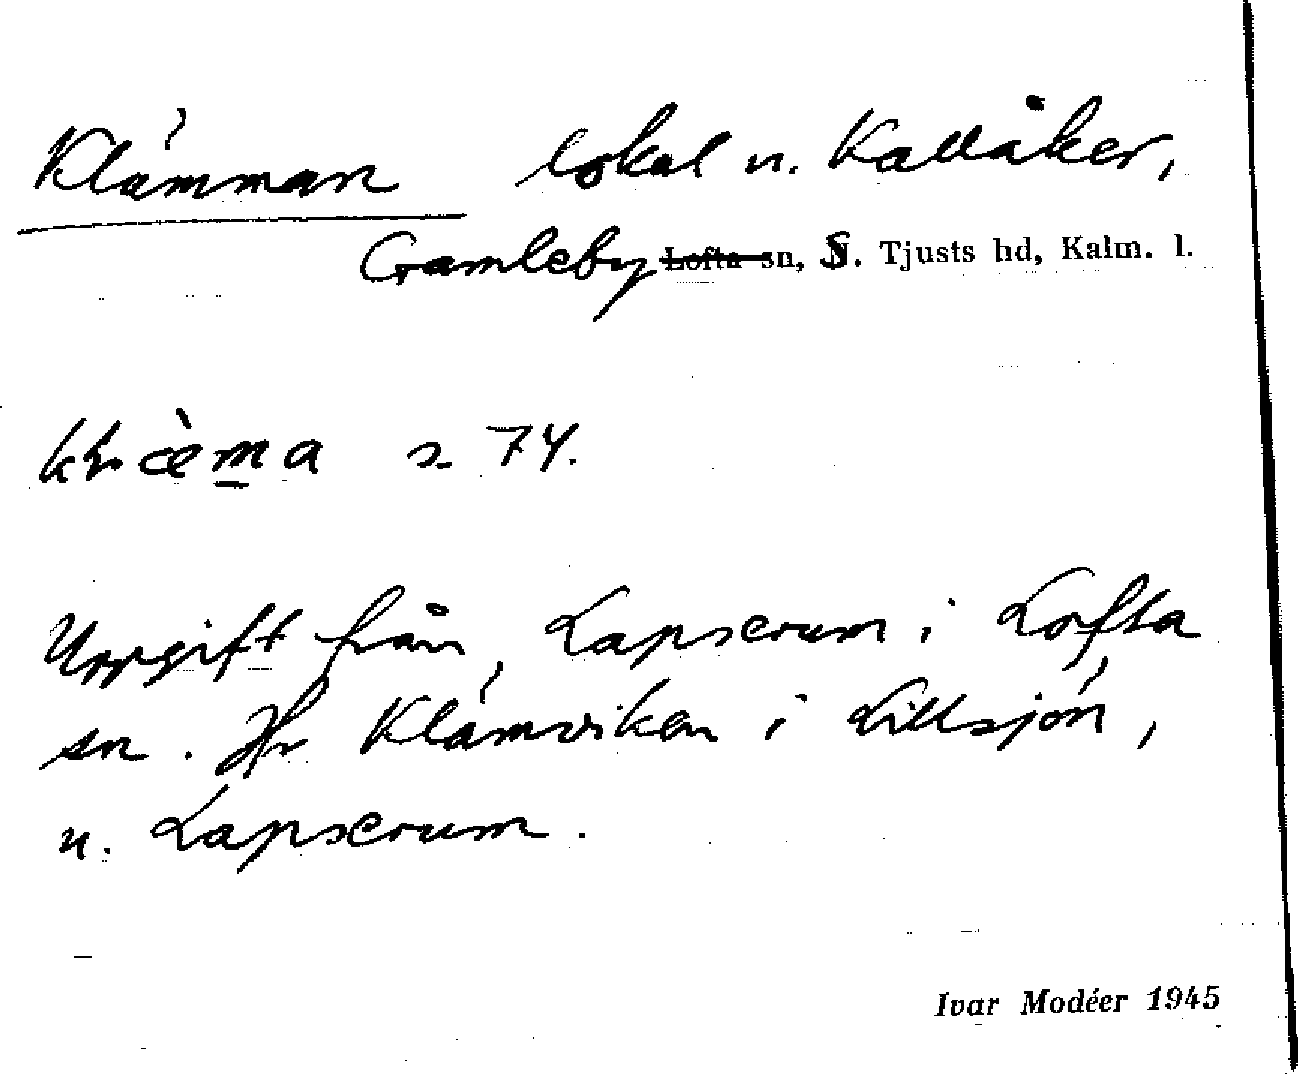 Klämman lokal n. Kallåker,
Gamleby Lofta sn, S. Tjusts hd, Kalm. l.
klæ̀ma s 74.
Uppgift från Lapserum i Lofta
sn. Jfr Klämviken i Lillsjön,
n. Lapserum.
Ivar Modéer 1945